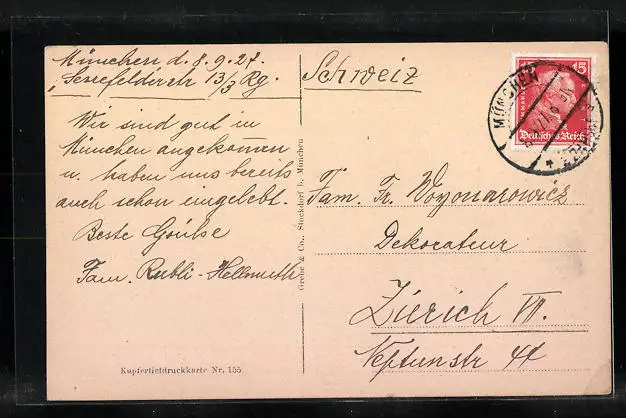 München d. 8.9.27.
Senefelderstr 13/3 Rg.
Wir sind gut in
München angekommen
u. haben uns bereits
auch schon eingelebt.
Beste Grüsse
Fam. Rubli-Hellmuth
Kupfertiefdruckkarte Nr. 155
Grebe & Co., Stockdorf b. München
Schweiz
15
Deutsches Reich
MÜNCHEN
Fam. Fr. Woyonarowicz
Dekorateur
Zürich VII.
Neptunstr 44